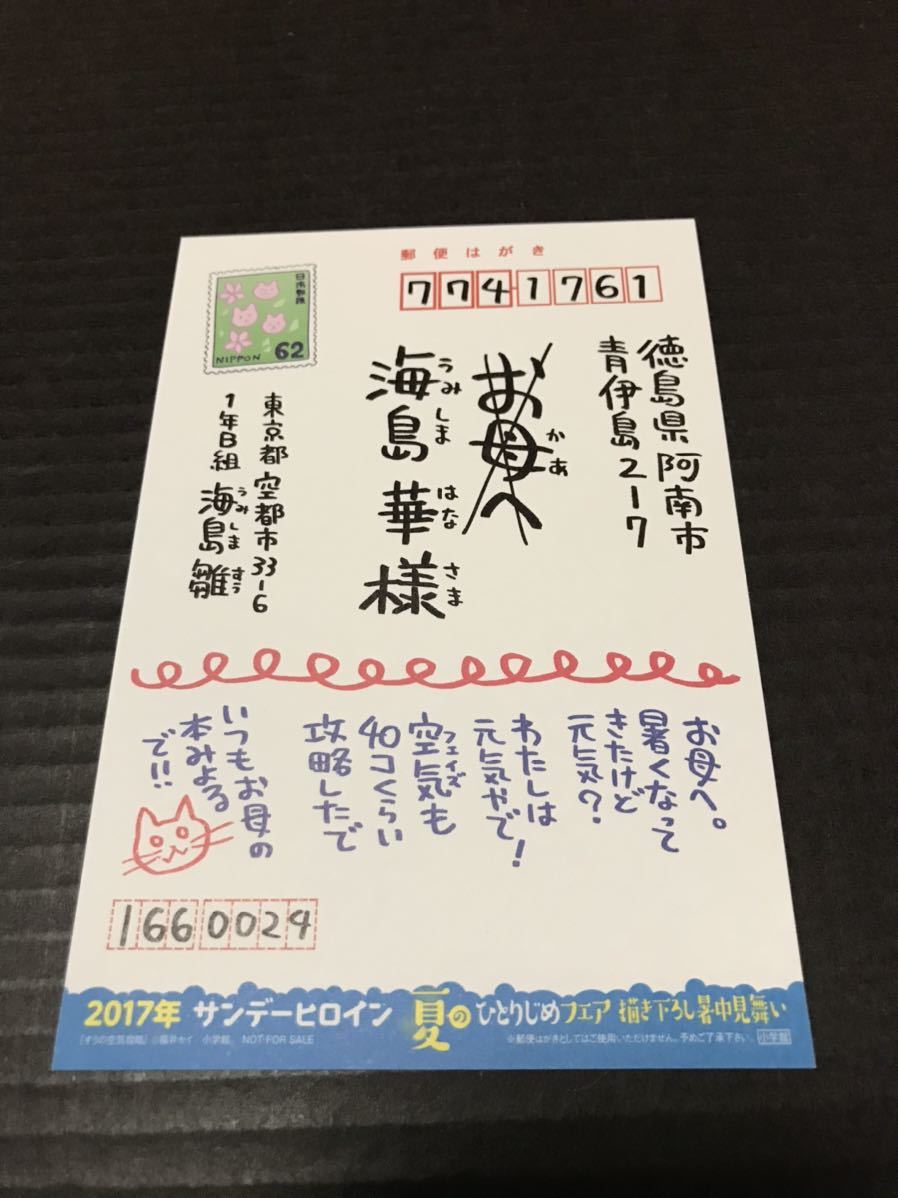 郵便はがき
7741761
日本郵便
NIPPON 62
徳島県阿南市
青伊島2-7
お母へ
かあ
海島 華様
うみしま はな さま
東京都 空都市33-6
1年B組 海島雛
うみしま すう
お母へ。
暑くなって
きたけど
元気?
わたしは
元気やで!
空気も
フェイズ
40コくらい
攻略したで
いつもお母の
本みよる
で!!
1660024
2017年 サンデーヒロイン 夏のひとりじめフェア 描き下ろし暑中見舞い
「すうの空気攻略」 ©福井セイ 小学館 NOT FOR SALE
※郵便はがきとしてはご使用いただけません。予めご了承下さい。 小学館